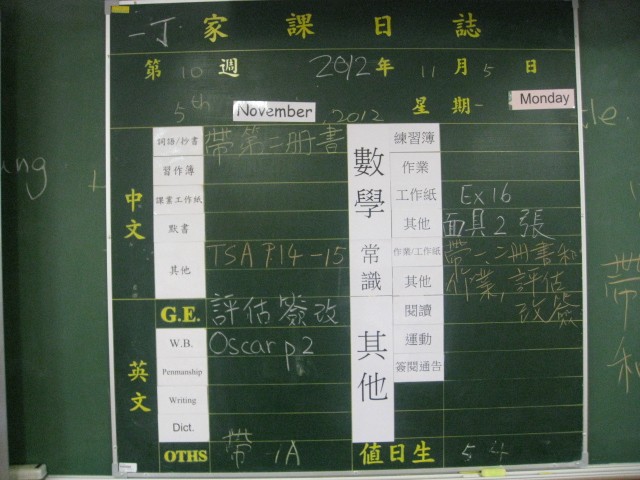 一丁 家課日誌
第 10 週 2012 年 11 月 5 日
5th November, 2012 星期一 Monday
中文
詞語/抄書 帶第二冊書
習作簿
課業工作紙
默書
其他 TSA P.14-15
英文
G.E. 評估簽改
W.B. Oscar p2
Penmanship
Writing
Dict.
OTHS 帶 1A
數學
練習簿
作業
工作紙 Ex16
其他 面具2張
常識
作業/工作紙 帶一、二冊書和
其他 作業,評估
改簽
其他
閱讀
運動
簽閱通告
值日生 5 4
ung
le.
帶
和